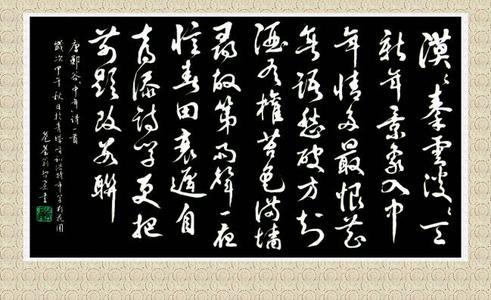 漠〻秦雲淡〻天
新年景象入中
年情多最恨花
無語愁破方知
酒有權苔色滿墻
尋故第雨聲一夜
憶春田衰遲自
喜添詩學更把
前題改數聯
唐鄭谷中年詩一首
歲次甲午秋日於青